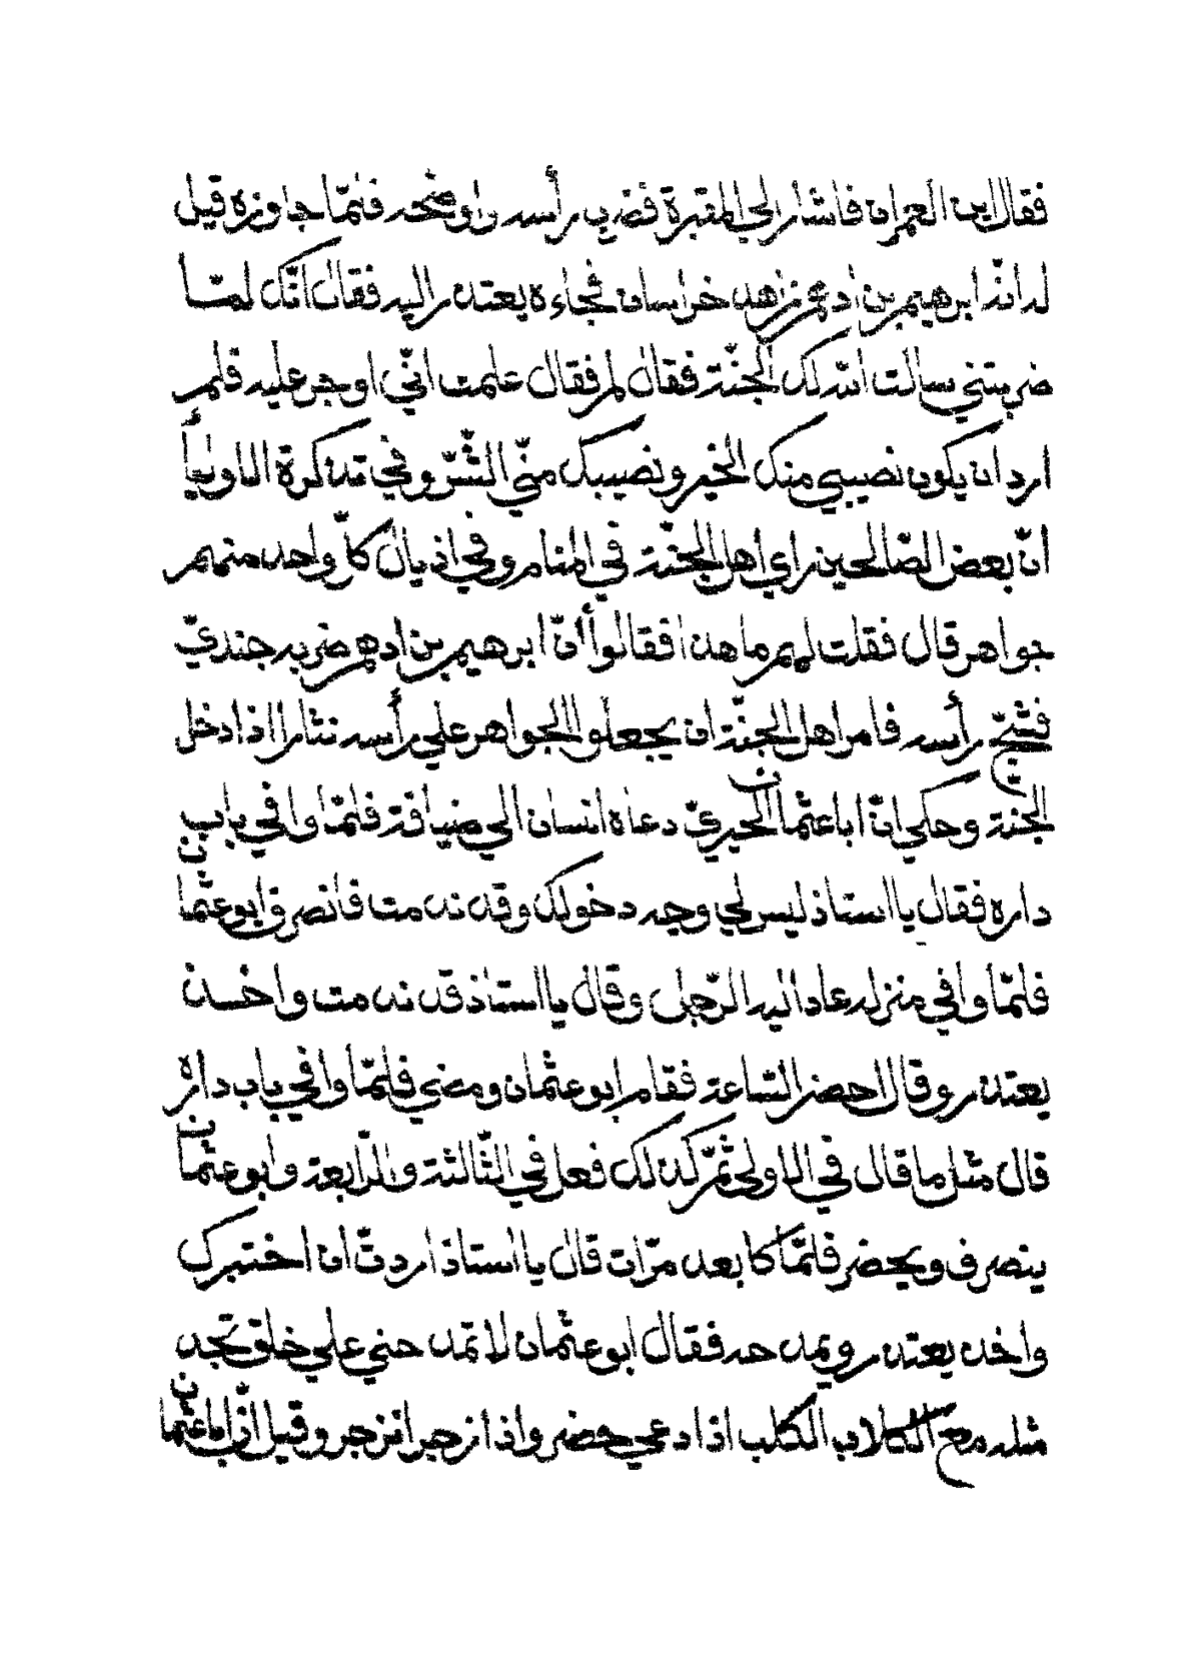 فقال اين العمران فاشار الي المقبرة فضرب رأسه واوضحه فلمّا جاوزه قيل
له انّه ابرهيم بن ادهم زاهد خراسان فجاءه يعتذر اليه فقال انّك لمّا
ضربتني سالت الله لك الجنّة فقال لم فقال علمت انّي اوجر عليه فلم
ارد ان يكون نصيبي منك الخير ونصيبك منّي الشّر وفي تذكرة الاولياء
انّ بعض الصّالحين راي اهل الجنّة في المنام وفي اذيال كلّ واحد منهم
جواهر قال فقلت لهم ما هذا فقالوا أنّ ابرهيم بن ادهم ضربه جنديّ
فشجّ رأسه فامر اهل الجنّة ان يجعلوا الجواهر علي رأسه نثارا اذا دخل
الجنة وحكي انّ ابا عثمان الحيريّ دعاه انسان الي ضيافة فلمّا وافي باب
داره فقال يا استاذ ليس لي وجه دخولك وقد ندمت فانصرف ابو عثمان
فلمّا وافي منزله عاد اليه الرّجل وقال يا استاذ قد ندمت واخذ
يعتذر وقال احضر السّاعة فقام ابو عثمان ومضي فلمّا وافي باب داره
قال مثل ما قال في الاولي ثمّ كذلك فعل في الثّالثة والرّابعة وابو عثمان
ينصرف ويحضر فلمّا كا بعد مرّات قال يا استاذ اردتّ ان اختبرك
واخذ يعتذر ويمدحه فقال ابو عثمان لا تمدحني علي خلق تجد
مثله مع الكلاب الكلب اذا دعي حضر واذا زجر انزجر وقيل انّ ابا عثمان